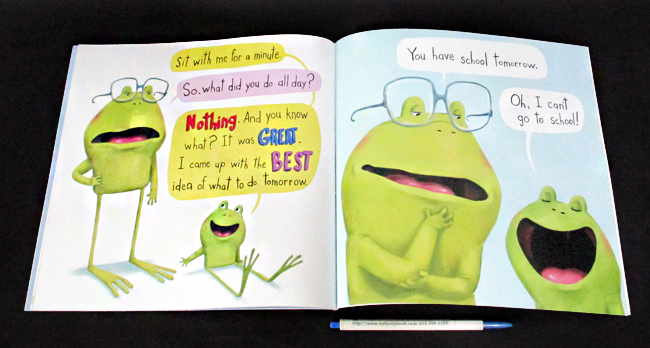 Sit with me for a minute.
So, what did you do all day?
Nothing. And you know
what? It was GREAT.
I came up with the BEST
idea of what to do tomorrow.
You have school tomorrow.
Oh, I can't
go to school!